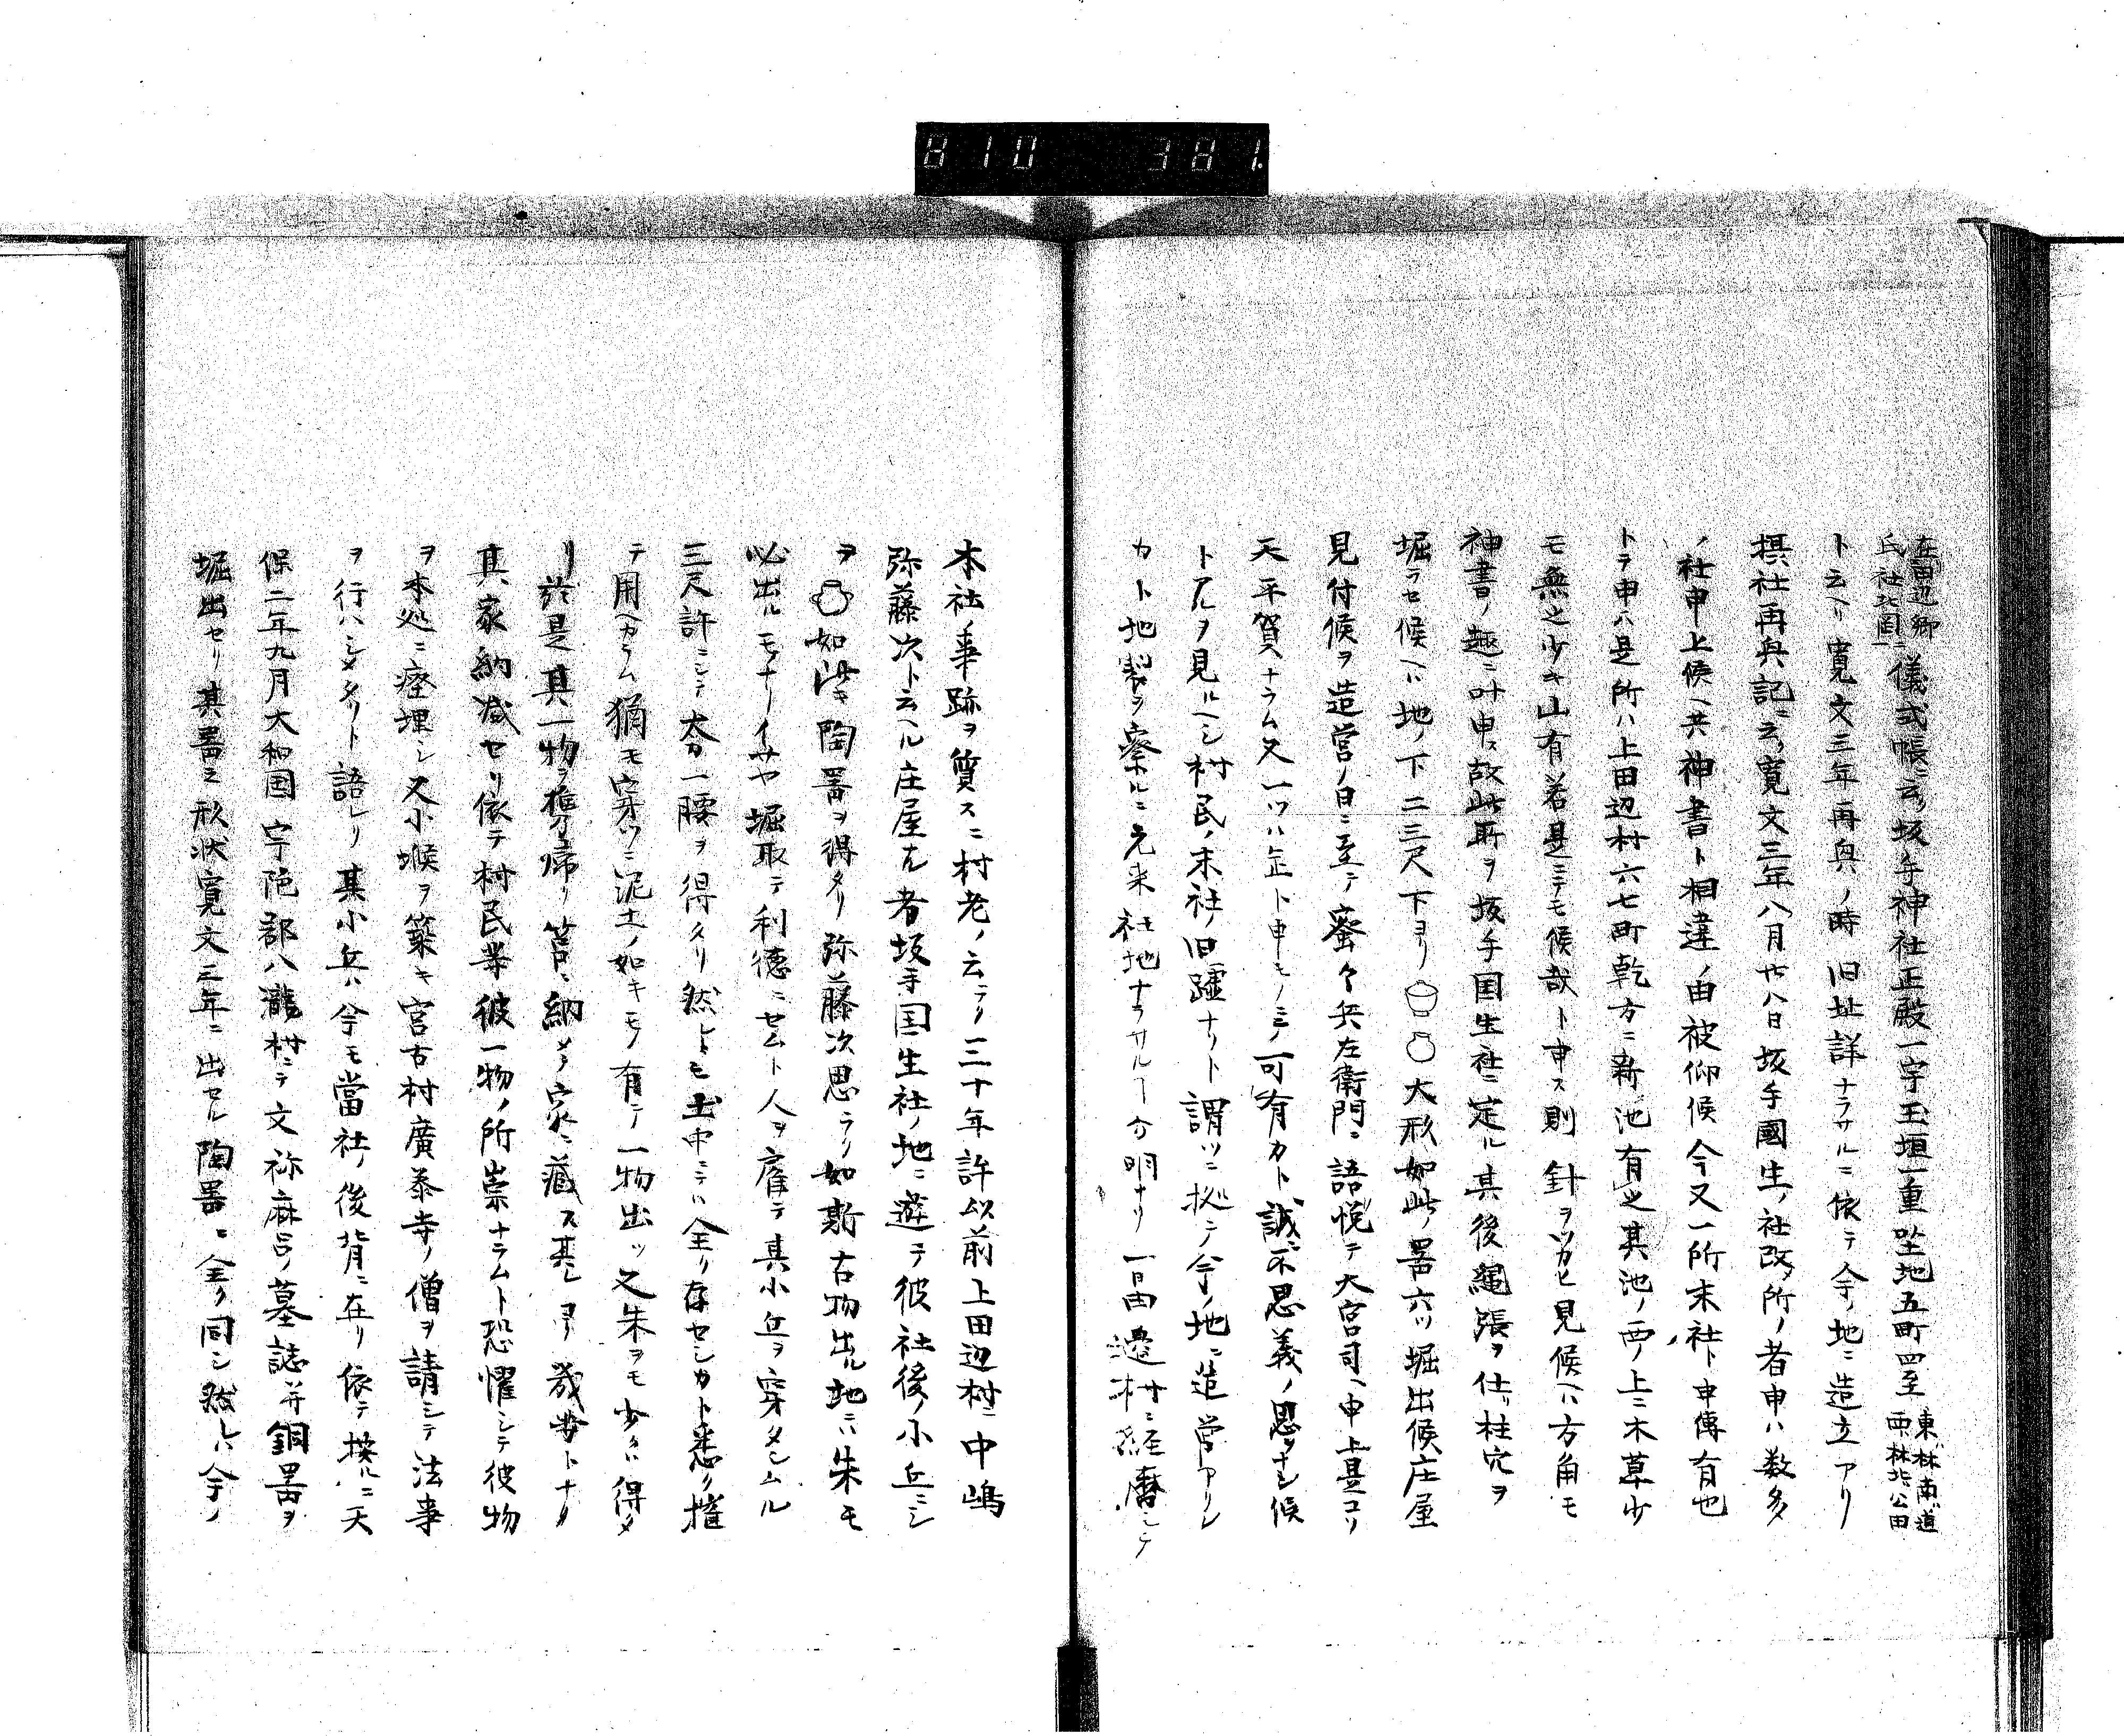 810 381.
在田辺郷
氏社北岡ニ 儀式帳ニ云ク坂手神社正殿一宇玉垣一重坐地五町四至 東ハ林南ハ道
西ハ林北ハ公田
ト云ヘリ寛文三年再興ノ時旧址詳ナラサルニ依テ今ノ地ニ造立アリ
摂社再興記ニ云ク寛文三年八月廿八日坂手國生ノ社改ノ所ノ者申ハ数多
ノ社申上候ヘ共神書ト相違ノ由被仰候今又一所末社ト申傳有也
トテ申ハ是所ハ上田辺村六七町乾方ニ新池有之其池ノ西ノ上ニ木草少
モ無之少キ山有若是ニテモ候哉ト申ス則針ヲツカヒ見候ヘハ方角モ
神書ノ趣ニ叶申ス故此所ヲ坂手国生社ニ定ル其後縄張ヲ仕リ柱穴ヲ
堀ラセ候ヘハ地ノ下二三尺下ヨリ 大形如此ノ器六ツ堀出候庄屋
見付候ヲ造営ノ日ニ至テ蜜々兵左衛門ニ語悦テ大宮司ヘ申上是コソ
天平賀ナラム又一ツハ缶ト申モノニテ可有カト誠ニ不思義ノ思ヲナシ候
トアルヲ見ルヘシ村民ノ末社ノ旧蹟ナリト謂ツニ拠テ今ノ地ニ造営アリシ
カト地製ヲ察ルニ元来社地ナラサルヿ分明ナリ一日田邊村ニ経暦シテ
本社ノ事跡ヲ質スニ村老ノ云ラク三十年許以前上田辺村ニ中嶋
弥藤次ト云ヘル庄屋ナル者坂手国生社ノ地ニ遊テ彼社後ノ小丘ニシ
ヲ 如此キ陶器ヲ得タリ弥藤次思ラク如斯古物出ル地ニハ朱モ
必出ルモノナリイサヤ堀取テ利徳ニセムト人ヲ雇テ其小丘ヲ穿タシムル
三尺許ニシテ太刀一腰ヲ得タリ然レトモ土中ニテハ全ク存セシカト悉ク摧
テ用ヘカラス猶モ穿ツニ泥土ノ如キモノ有テ一物出ツ又朱ヲモ少々ハ得タ
リ於是其一物ヲ携ヘ帰リ筥ニ納メテ家ニ蔵ス其レヨリ幾勞トナク
其家納减セリ依テ村民等彼一物ノ所祟ナラムト恐懼シテ彼物
ヲ本処ニ瘞埋シ又小堠ヲ築キ宮古村廣泰寺ノ僧ヲ請シテ法事
ヲ行ハシメタリト語レリ其小丘ハ今モ當社ノ後背ニ在リ依テ按ルニ天
保二年九月大和国宇陀郡八瀧村ニテ文祢麻呂ノ墓誌并銅器ヲ
堀出セリ其器之形状寛文三年ニ出セル陶器ニ全ク同シ然レハ今ノ